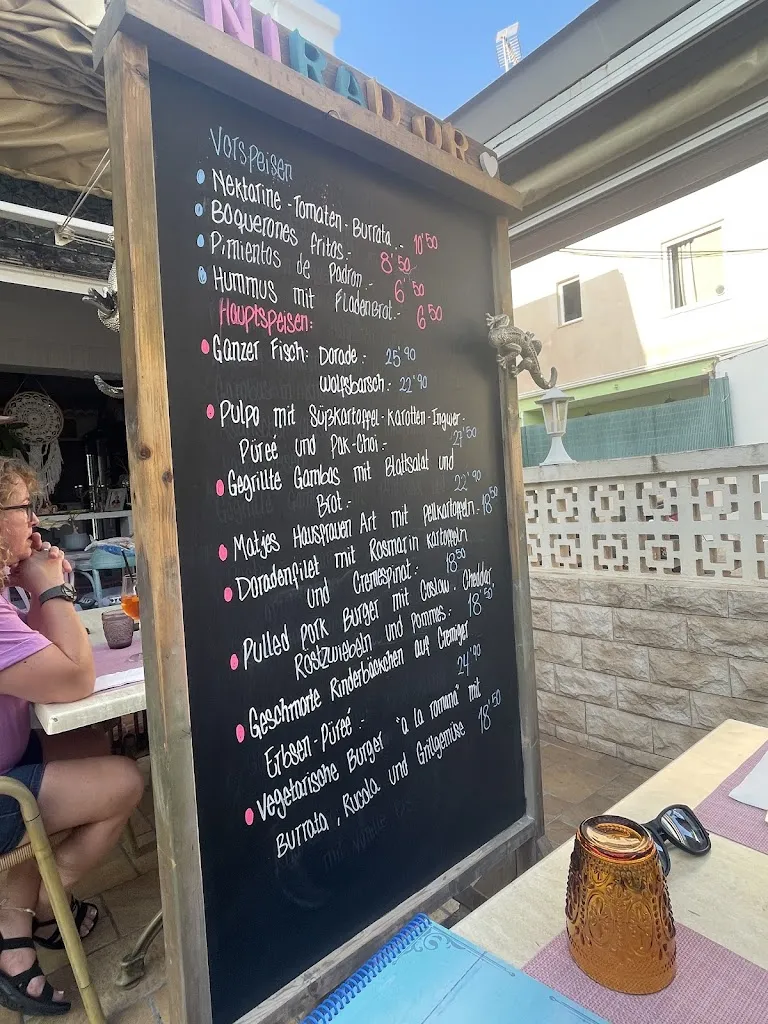 MIRADOR
Vorspeisen
Nektarine-Tomaten-Burrata.- 10'50
Boquerones fritos.- 8'50
Pimientos de Padron.- 6'50
Hummus mit Fladenbrot.- 6'50
Hauptspeisen:
Ganzer Fisch: Dorade.- 25'90
Wolfsbarsch.- 22'90
Pulpo mit Süßkartoffel-Karotten-Ingwer-
Püreé und Pak-Choi.- 27'50
Gegrillte Gambas mit Blattsalat und
Brot.- 22'90
Matjes Hausfrauen Art mit Pellkartoffeln.- 18'50
Doradenfilet mit Rosmarin kartoffeln
und Cremespinat.- 18'50
Pulled pork Burger mit Coslow, Cheddar,
Röstzwiebeln und Pommes.- 18'50
Geschmorte Rinderbäckchen auf Cremiger
Erbsen-Püreé.- 24'90
Vegetarische Burger "a la romana" mit
Burrata, Rucola und Grillgemüse 18'50